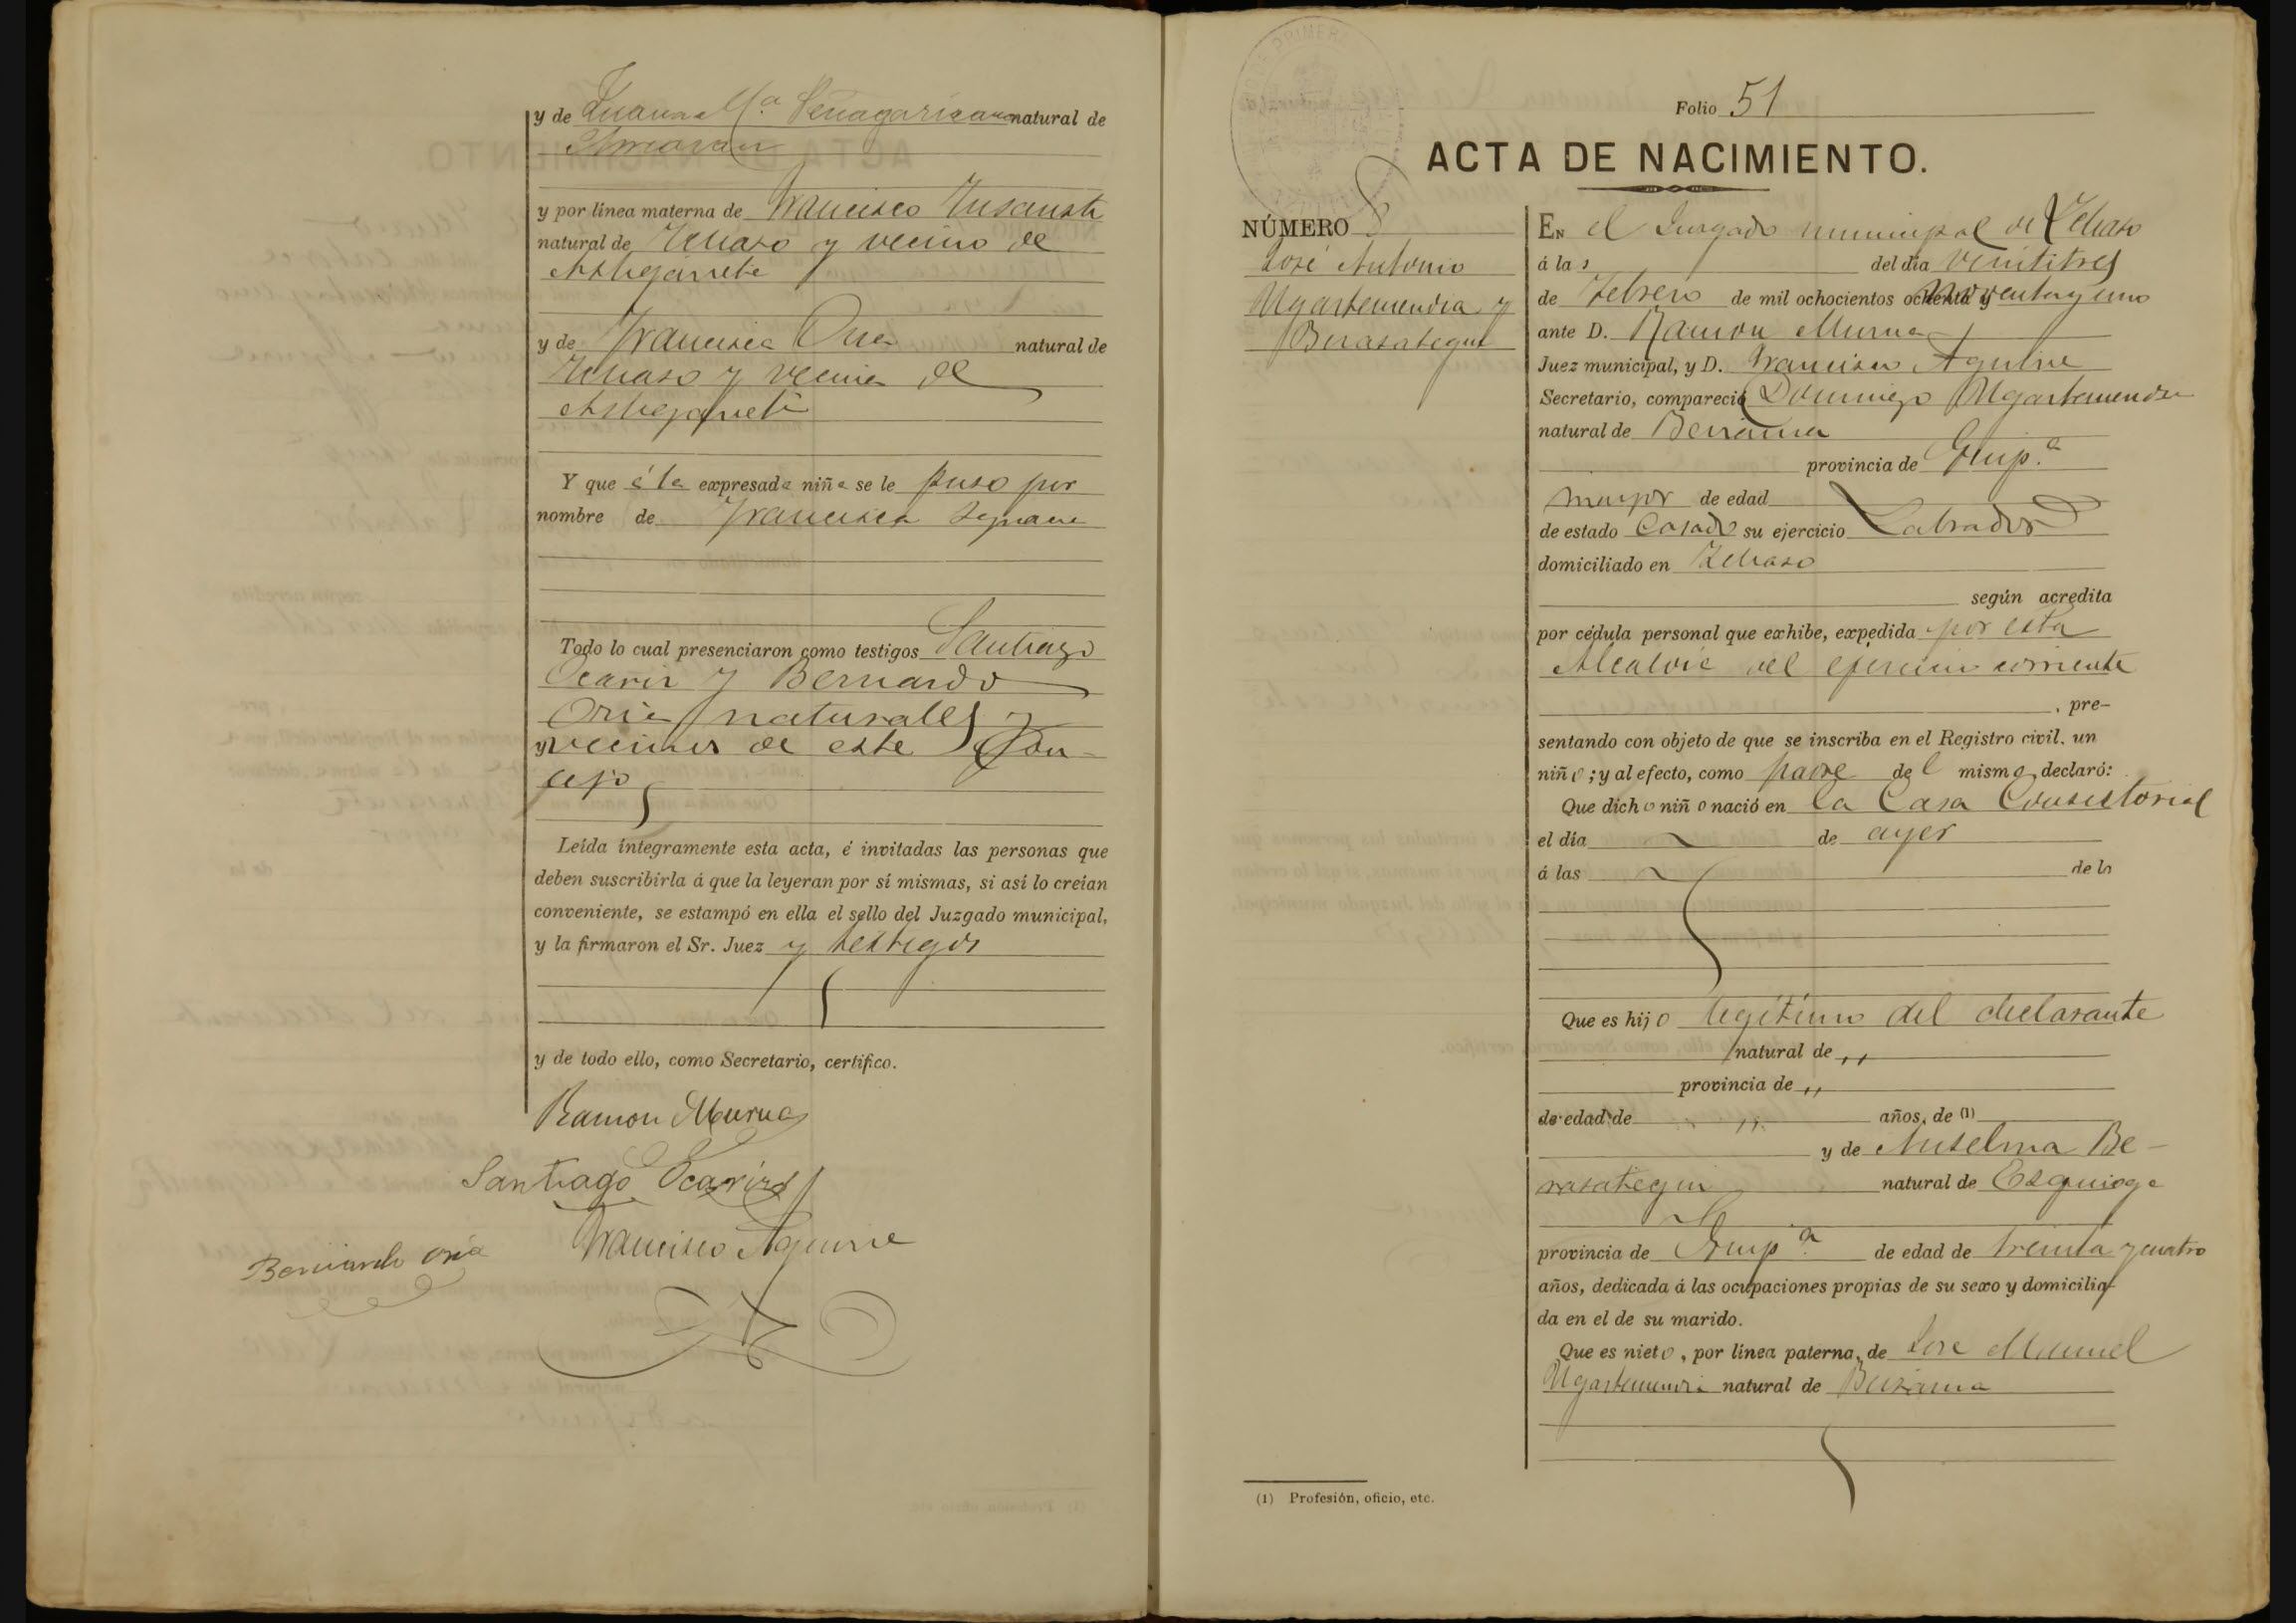 y de Juana Mª Penagaricano natural de
Amaroz
y por línea materna de Francisco Insausti
natural de Ichaso y vecino de
Astigarreta
y de Francisca Oria natural de
Ichaso y vecina de
Astigarreta
Y que á la expresada niña se le puso por
nombre de Francisca Ignacia
Todo lo cual presenciaron como testigos Santiago
Ocariz y Bernardo
Oria naturales y
y vecinos de este Con-
cejo
Leída íntegramente esta acta, é invitadas las personas que
deben suscribirla á que la leyeran por sí mismas, si así lo creían
conveniente, se estampó en ella el sello del Juzgado municipal,
y la firmaron el Sr. Juez y testigos
y de todo ello, como Secretario, certifico.
Ramon Murua
Santiago Ocariz
Francisco Aguirre
Bernardo Oria
Folio 51
ACTA DE NACIMIENTO.
NÚMERO 8
José Antonio
Ugartemendia y
Berasategui
EN el Juzgado municipal de Ichaso
á las del día veintitres
de Febrero de mil ochocientos ochenta y noventa y uno
ante D. Ramon Murua
Juez municipal, y D. Francisco Aguirre
Secretario, compareció Domingo Ugartemendia
natural de Beizama
provincia de Guip.ª
mayor de edad
de estado Casado su ejercicio Labrador
domiciliado en Ichaso
según acredita
por cédula personal que exhibe, expedida por esta
Alcaldía del ejercicio corriente
, pre-
sentando con objeto de que se inscriba en el Registro civil, un
niño; y al efecto, como padre del mismo, declaró:
Que dicho niño nació en la Casa Consistorial
el día de ayer
á las de la
Que es hijo legítimo del declarante
natural de ,,
provincia de ,,
de edad de ,, años, de (1)
y de Anselma Be-
rasategui natural de Ezquioga
provincia de Guip.ª de edad de treinta y cuatro
años, dedicada á las ocupaciones propias de su sexo y domicilia-
da en el de su marido.
Que es nieto, por línea paterna, de José Manuel
Ugartemendia natural de Beizama
(1) Profesión, oficio, etc.